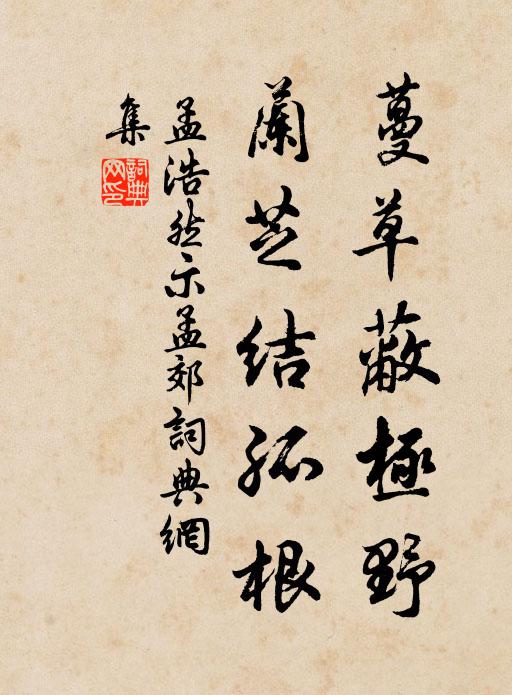 蔓草蔽極野
蘭芝結孤根
孟浩然示孟郊詞典網
集
詞典网印